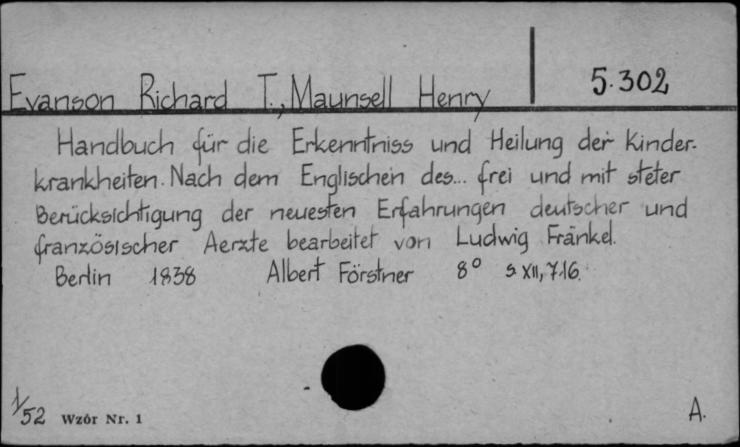 Evanson Richard T., Maunsell Henry 5.302
Handbuch für die Erkenntniss und Heilung der Kinder-
krankheiten. Nach dem Englischen des... frei und mit steter
Berücksichtigung der neuesten Erfahrungen deutscher und
französischer Aerzte bearbeitet von Ludwig Fränkel.
Berlin 1838 Albert Förstner 8° s. XII, 716.
1/52 Wzór Nr. 1 A.